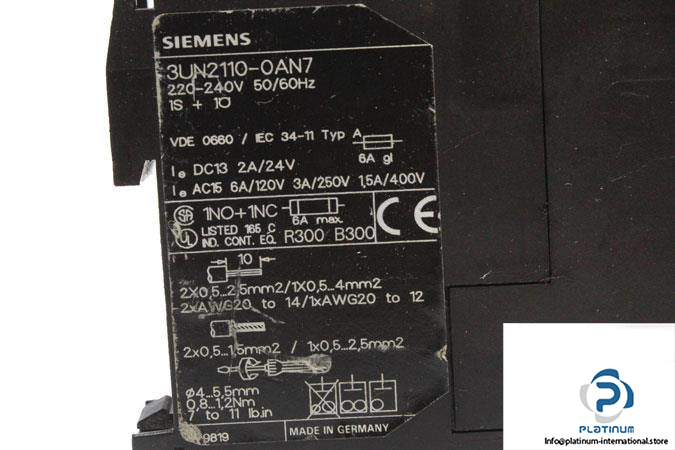 SIEMENS
3UN2110-0AN7
220-240V 50/60Hz
1S + 1Ö
VDE 0660 / IEC 34-11 Typ A
6A gl
Ie DC13 2A/24V
Ie AC15 6A/120V 3A/250V 1,5A/400V
SA 1NO+1NC
6A max.
UL LISTED 165 C
IND. CONT. EQ. R300 B300
CE
10
2X0,5...2,5mm2/1X0,5...4mm2
2xAWG20 to 14/1xAWG20 to 12
2x0,5...1,5mm2 / 1x0,5...2,5mm2
Ø4...5,5mm
0,8...1,2Nm
7 to 11 lb.in
9819
MADE IN GERMANY
PLATINUM
Info@platinum-international.store